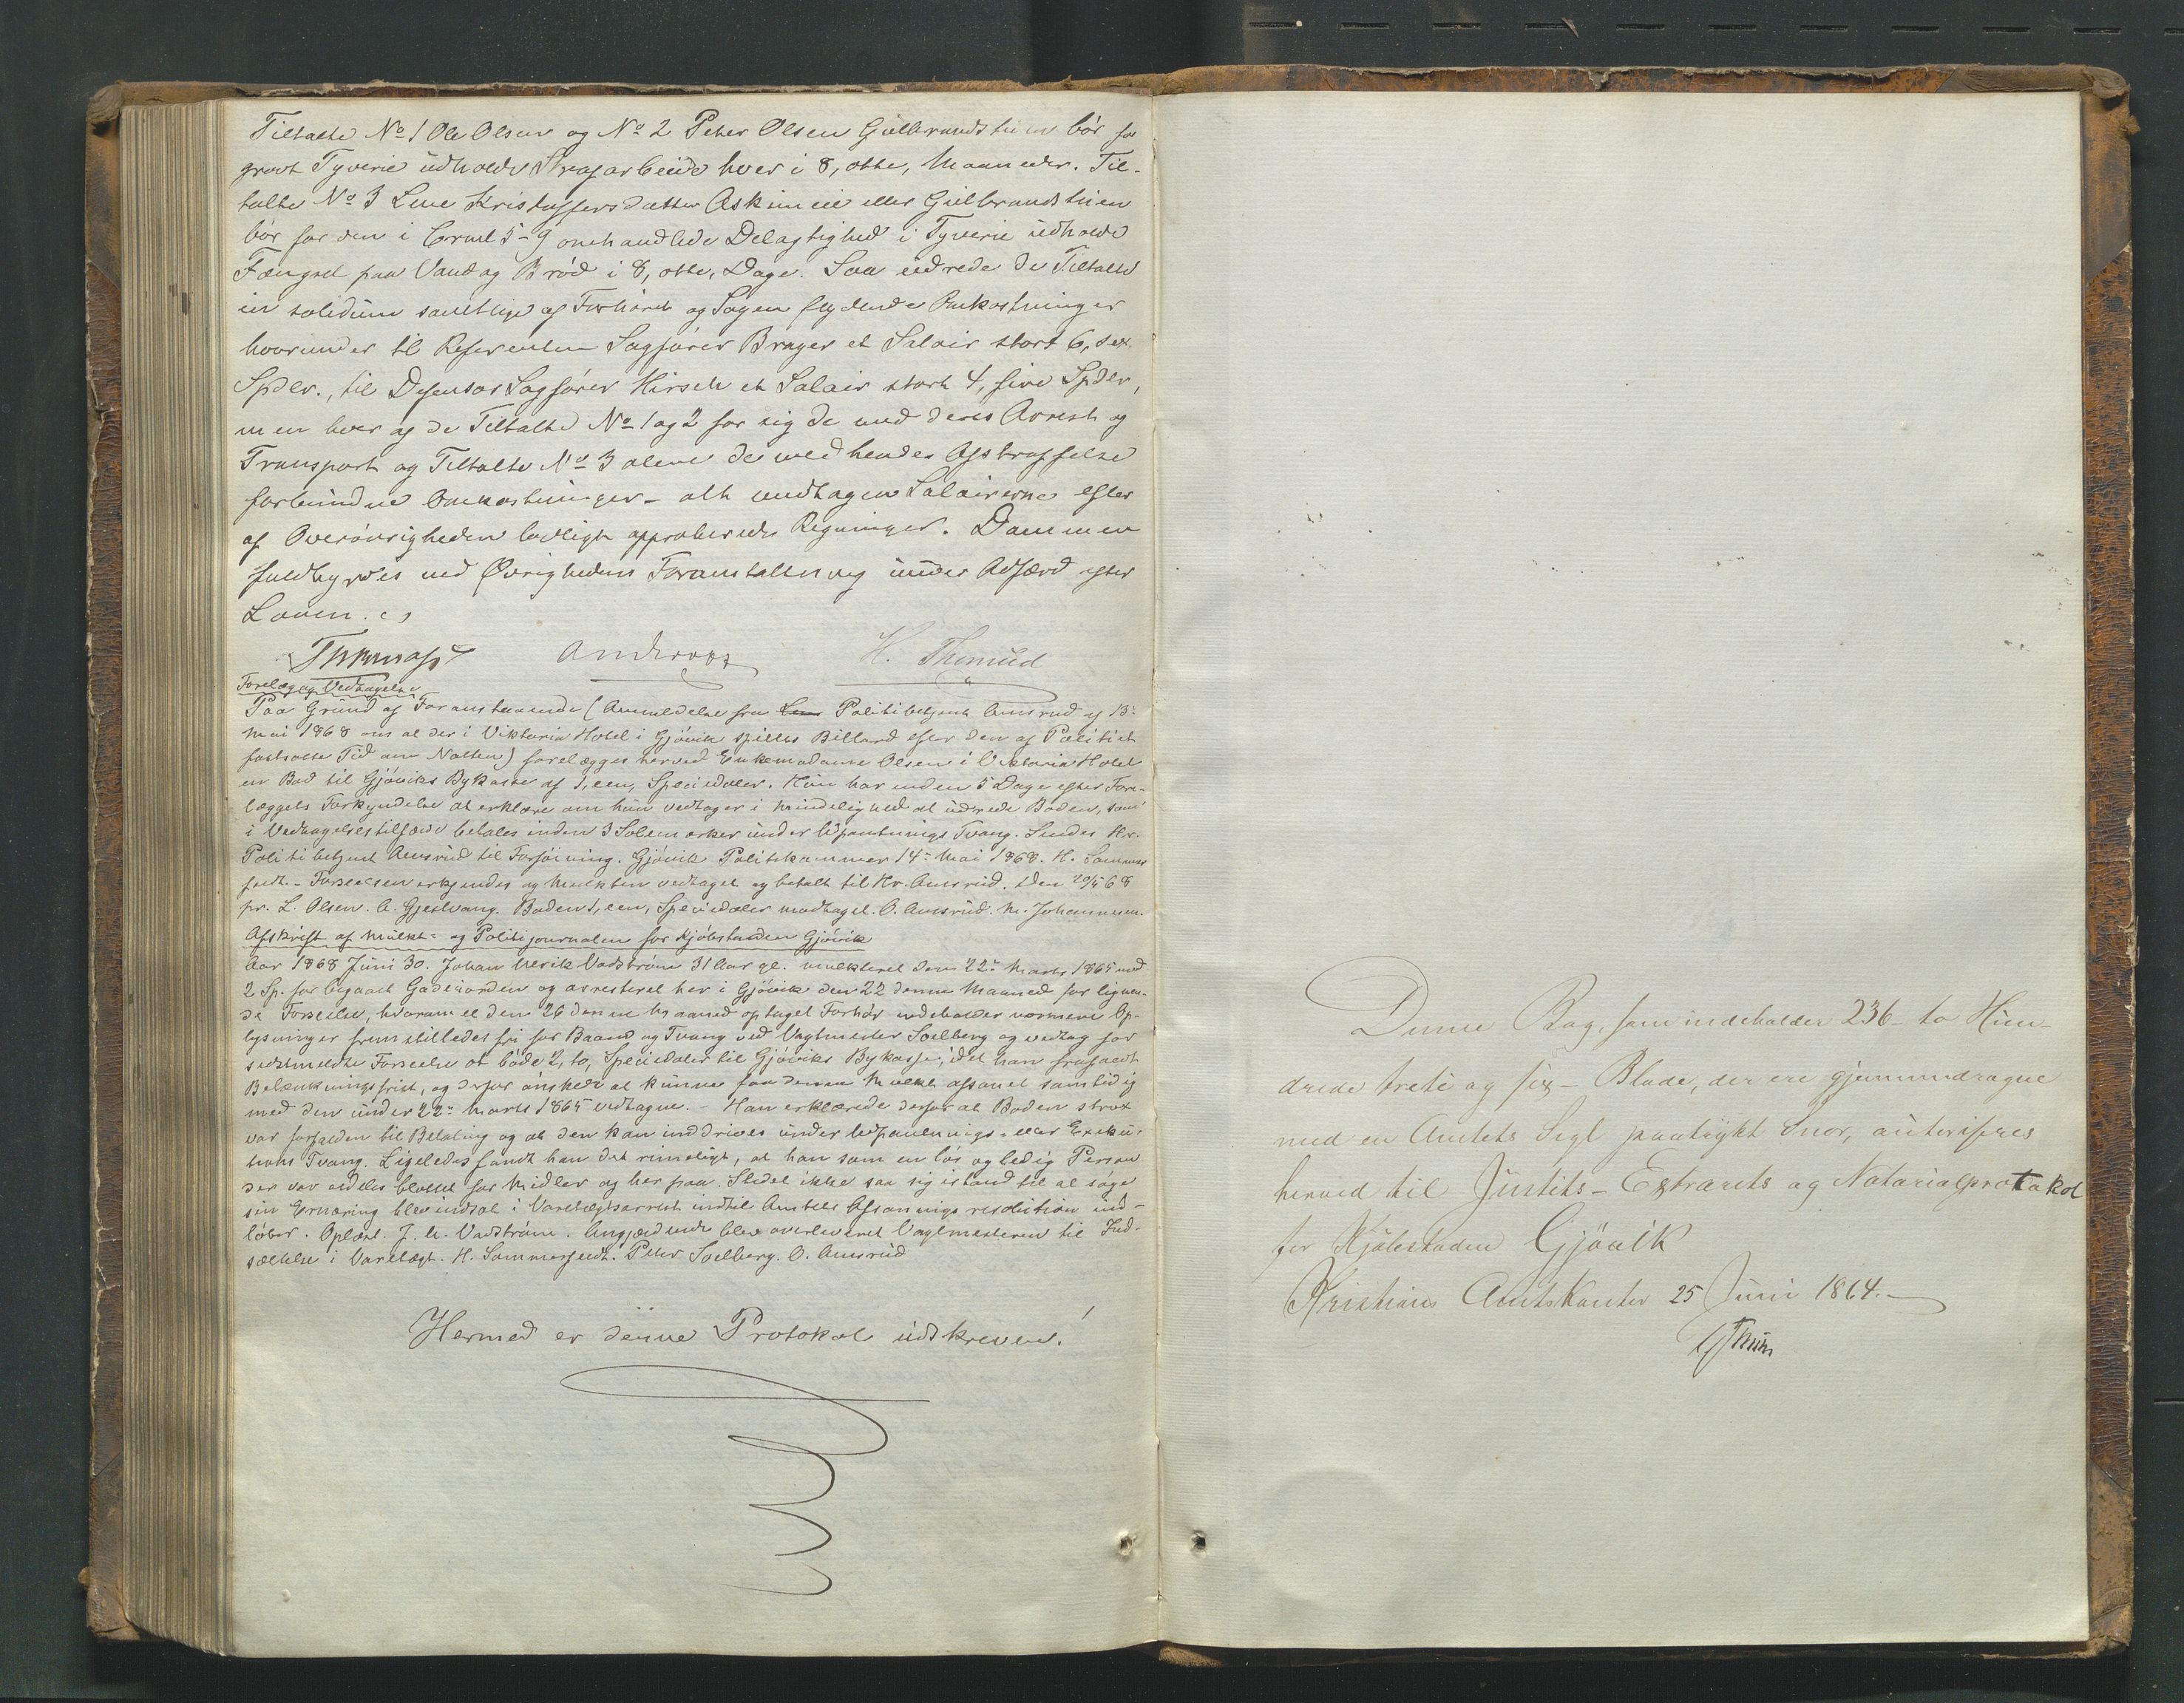 Tiltalte No 1 Ole Olsen og No 2 Peter Olsen Gulbrandstuen bör for
grovt Tyverie udholde Strafarbeide hver i 8, otte, Maaneder. Til-
talte No 3 Lene Kristoffersdatter Askimeie eller Gulbrandstuen
bör for den i Crml 5-9 omhandlede Delagtighed i Tyverie udholde
Fængsel paa Vand og Bröd i 8, otte, Dage. Saa udrede de Tiltalte
in solidum samtlige af Forhöret og Sagen flydende Omkostninger
hvorunder til Referenten Sagförer Brager et Salair stort 6, sex,
Spdlr., til Defensor Sagförer Hirsch et Salair stort 4, fire Spdlr,
men hver af de Tiltalte No 1 og 2 for sig de med deres Arrest og
Transport og Tiltalte No 3 alene de med hendes Afstraffelse
forbundne Omkostninger - alt undtagen Salairerne efter
af Overövrigheden lovligt approberede Regninger. Dommen
fuldbyrdes ved Øvrighedens Foranstaltning under Adfærd efter
Loven.
H. Thunud
Forelæg og Vedtagelse
Paa Grund af Foranstaaende (Anmeldelse fra Politibetjent Amrud af 13:
Mai 1868 om at der i Viktoria Hotel i Gjövik spilles Billard efter den af Politiet
fastsatte Tid om Natten) forelægges herved Enkemadame Olsen i Viktoria Hotel
en Bod til Gjöviks Bykasse af 1, een, Speciedaler. Hun har inden 5 Dage efter Fore-
læggets Forkyndelse at erklære om hun vedtager i Mindelighed at udrede Boden, som
i Vedtagelsestilfælde betales inden 3 Solemærker under Udpantnings Tvang. Sendes Hr.
Politibetjent Amrud til Forföining. Gjövik Politikammer 14de Mai 1868. H. Sommer-
feldt. - Forseelsen erkjendes og Mulkten vedtaget og betalt til Hr. Amrud. Den 20/5 68
pr. L. Olsen. A. Gjestvang. Boden 1, een, Speciedaler modtaget. O. Amrud. M. Johannesen.
Afskrift af Mulkt- og Politijournalen for Kjöbstaden Gjövik
Aar 1868 Juni 30. Johan Ulrik Vadström 31 Aar gl. mulkteret den 22de Marts 1865 med
2 Sp. for begaaet Gadeuorden og arresteret her i Gjövik den 22 denne Maaned for lignen-
de Forseelse, hvorom et den 26 denne Maaned optaget Forhör indeholder nærmere Op-
lysninger fremstilledes fri for Baand og Tvang ved Vagtmester Soelberg og vedtog for
sidstmeldte Forseelse at böde 2, to, Speciedaler til Gjöviks Bykasse, idet han frafaldt
Betænkningsfrist, og derfor önskede at kunne faa denne Mulkt afsonet samtidig
med den under 22de Marts 1865 vedtagne. - Han erklærede derfor at Boden strax
var forfalden til Betaling og at den kan inddrives under Udpantnings- eller Exeku-
tions Tvang. Ligeledes fandt han det rimeligt, at han som en lös og ledig Person
der var aldeles blottet for Midler og her paa Stedet ikke saa sig istand til at söge
sin Ernæring blev indsat i Varetægtsarrest indtil Amtets Afsoningsresolution ind-
löber. Oplæst. J. U. Vadström. Angjældende blev overleveret Vagtmesteren til Ind-
sættelse i Varetægt. H. Sommerfeldt. Peter Soelberg. O. Amrud
Hermed er denne Protokol udskreven!
Denne Bog, som indeholder 236 - to Hun-
drede treti og sex - Blade, der ere gjennemdragne
med en Amtets Segl paatrykt Snor, autoriseres
herved til Justits - Extrarets og Notarialprotokol
for Kjöbstaden Gjövik
Kristians Amtskontor 25 Juni 1864.